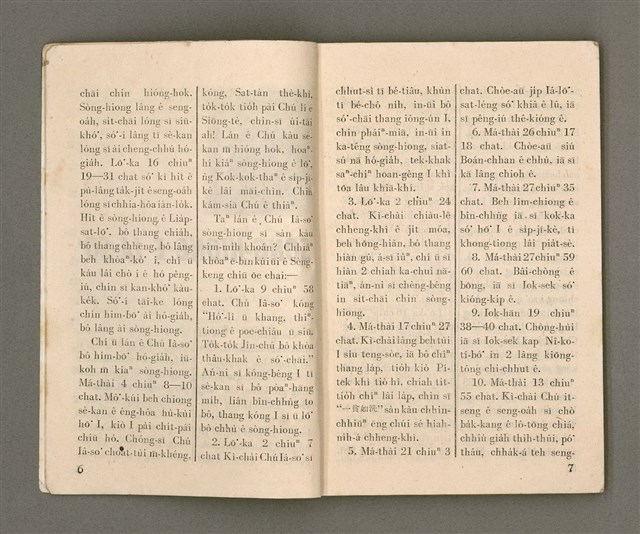 chāi chin hióng-hok.
Sòng-hiong lâng ê seng-
oa̍h, sit-chāi lóng sī siū-
khó͘, só͘-í lâng tī sè-kan
lóng sī ài cheng-chhú hó-
gia̍h. Lō͘-ka 16 chiuⁿ
19—31 chat só͘ kì hit ê
pù-lâng ta̍k-ji̍t ê seng-oa̍h
lóng sī chhia-hòa iàn-lo̍k.
Hit ê sòng-hiong ê Lia̍p-
sat-lō͘, bô thang chia̍h,
bô thang chhēng, bô lâng
beh khòaⁿ-kò͘ i, chí ū
káu lâi chò i ê hó pêng-
iú, chin sī kan-khó͘ káu-
ke̍k. Só͘-í tāi-ke lóng
chin him-bō͘ ài hó-gia̍h,
bô lâng ài sòng-hiong.
Chí ū lán ê Chú Iâ-so͘
bô him-bō͘ hó-gia̍h, iū-
koh m̄ kiaⁿ sòng-hiong.
Má-thài 4 chiuⁿ 8—10
chat. Mô͘-kúi beh chiong
sè-kan ê êng-hôa hù-kùi
hō͘ I, kiò I pài chi̍t-pái
chiū hó. Chóng-sī Chú
Iâ-so͘ choa̍t-tùi m̄-khéng.
kóng, Sat-tàn thè-khì,
to̍k-to̍k tio̍h pài Chú lí ê
Siōng-tè, chin-sī úi-tāi
ah! Lán ê Chú káu sè-
kan m̄ hióng hok, hoaⁿ-
hí kiâⁿ sòng-hiong ê lō͘,
ǹg Kok-kok-thaⁿ ê si̍p-jī-
kè lâi māi-chìn. Chin
kám-siā Chú ê thiàⁿ.
Taⁿ lán ê Chú Iâ-so͘
sòng-hiong sī sàn kàu
sím-mih khoán? Chhiáⁿ
khòaⁿ ē-bīn kúi úi ê Sèng-
keng chiū ōe chai:—
1. Lō͘-ka 9 chiuⁿ 58
chat. Chú Iâ-so͘ kóng
"Hô͘-lî ū khang, thiⁿ-
tiong ê poe-chiáu ū siū.
To̍k-to̍k Jîn-chú bô khòa
thâu-khak ê só͘-chāi."
Án-ni sī kóng-bêng I tī
sè-kan sī bô pòaⁿ-hāng
mi̍h, liân bîn-chhn̂g to
bô, thang kóng I sī ū lō͘
bô chhù ê sòng-hiong.
2. Lō͘-ka 2 chiuⁿ 7
chat Kì-chāi Chú Iâ-so͘ sī
6
chhut-sì tī bé-tiâu, khùn
tī bé-chô nih, in-ūi bô
só͘-chāi thang iông-ún I,
chin pháiⁿ-miā, in-ūi in
ka-têng sòng-hiong, siat-
sú nā hó-gia̍h, tek-khak
saⁿ-chi̍ⁿ hoan-gêng I khì
tòa lâu khiā-khí.
3. Lō͘-ka 2 chiuⁿ 24
chat. Kì-chāi chiàu-lē
chheng-khì ê ji̍t móa,
beh hōng-hiàn, bô thang
hiàn gû, á-sī iûⁿ, chí ū sī
hiàn 2 chiah ka-chui nā-
tiāⁿ, án-ni sī chèng-bêng
in si̍t-chāi chin sòng-
hiong.
4. Má-thài 17 chiuⁿ 27
chat. Kì-chāi lâng beh tùi
I siu teng-sòe, iā bô chîⁿ
thang la̍p, tio̍h kiò Pí-
tek khì tiò hî, chiah tit-
tio̍h chîⁿ lâi la̍p, chin sī
"一貧如洗" sàn kàu chhin-
chhiūⁿ ēng chúi sé hiah-
nih-á chheng-khì.
5. Má-thài 21 chiuⁿ 3
chat. Chòe-āu ji̍p Iâ-lō͘-
sat-léng só͘ khiâ ê lû, iā
sī pêng-iú thê-kiong ê.
6. Má-thài 26 chiuⁿ 17
18 chat. Chòe-āu siū
Boán-chhan ê chhù, iā sī
kā lâng chioh ê.
7. Má-thài 27 chiuⁿ 35
chat. Beh lîm-chiong ê
bîn-chhn̂g iā sī kok-ka
só͘ hō͘ I ê si̍p-jī-kè, tī
khong-tiong lâi pia̍t-sè.
8. Má-thài 27 chiuⁿ 59
60 chat. Bâi-chòng ê
bōng, iā sī Iok-sek só͘
kiōng-kip ê.
9. Iok-hān 19 chiuⁿ
38—40 chat. Chòng-hùi
iā sī Iok-sek kap Nî-ko-
tí-bô͘ in 2 lâng kiōng-
tông chi-chhut ê.
10. Má-thài 13 chiuⁿ
55 chat. Kì-chāi Chú it-
seng ê seng-oa̍h sī chò
ba̍k-kang ê lô-tōng chiá,
chhiú gia̍h thih-thúi, pó͘-
thâu, chhák-á teh seng-
7